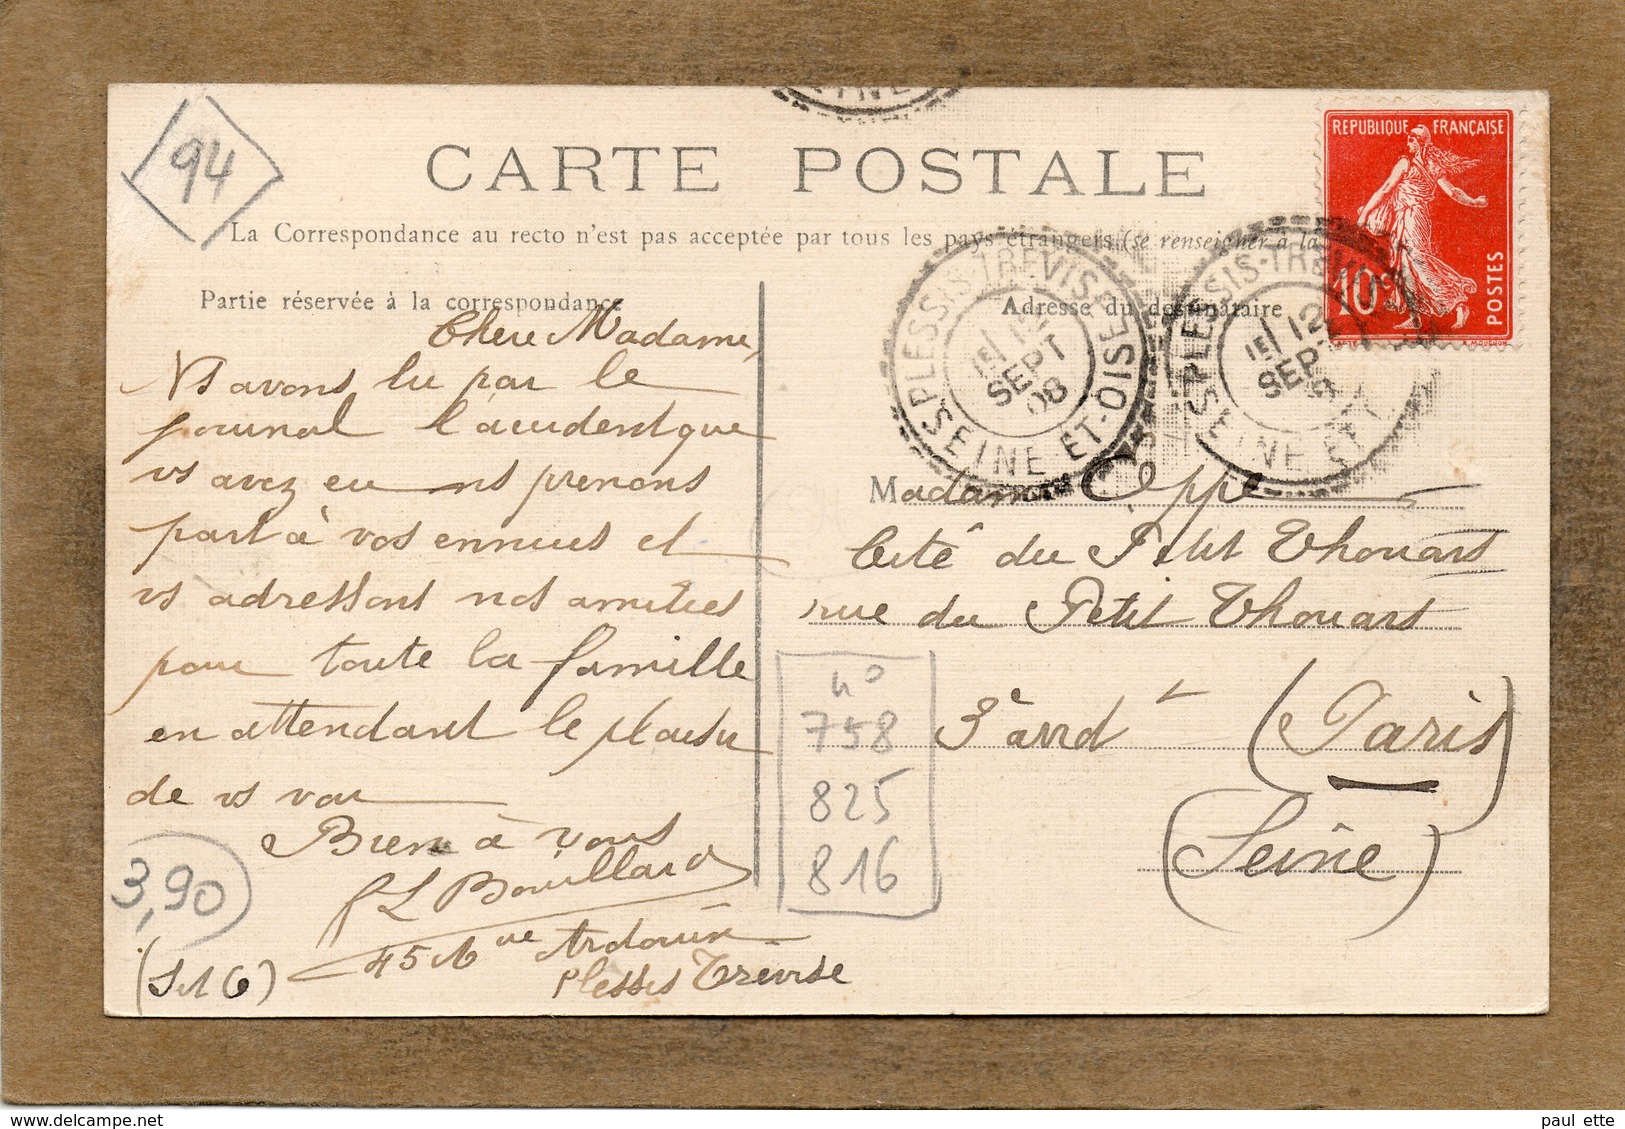 94
CARTE POSTALE
La Correspondance au recto n'est pas acceptée par tous les pays étrangers (se renseigner à la
Partie réservée à la correspondance
Adresse du destinataire
REPUBLIQUE FRANÇAISE
10c
POSTES
PLESSIS-TREVISE
12
SEPT
08
SEINE-ET-OISE
PLESSIS-TREVISE
12
SEPT
08
SEINE ET
Chere Madame,
Ns avons lu par le
journal l'accident que
vs avez eu ns prenons
part à vos ennuies et
vs adressons nos amitiés
pour toute la famille
en attendant le plaisir
de vs voir
Bien à vous
Bouillard
45 Ave Ardouin
Plessis Trevise
(S et O)
3,90
Madame Oeppe
Cité du Petit Thouars
rue du Petit Thouars
3e arrdt (Paris)
(Seine)
n°
758
825
816
delcampe.net
paul ette